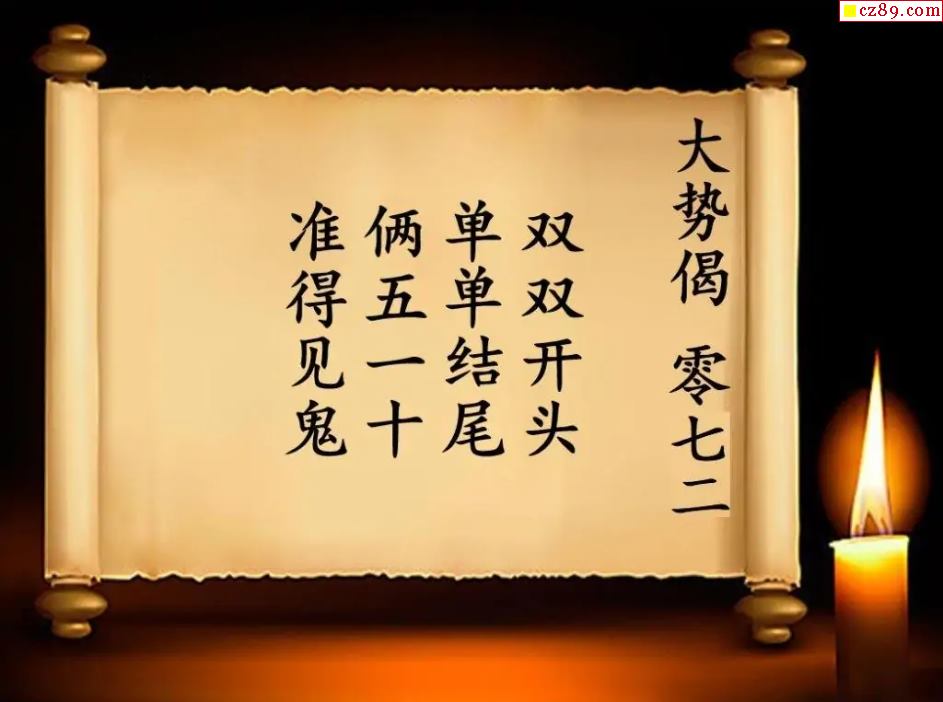 cz89.com
大势偈 零七二
双双开头
单单结尾
俩五一十
准得见鬼